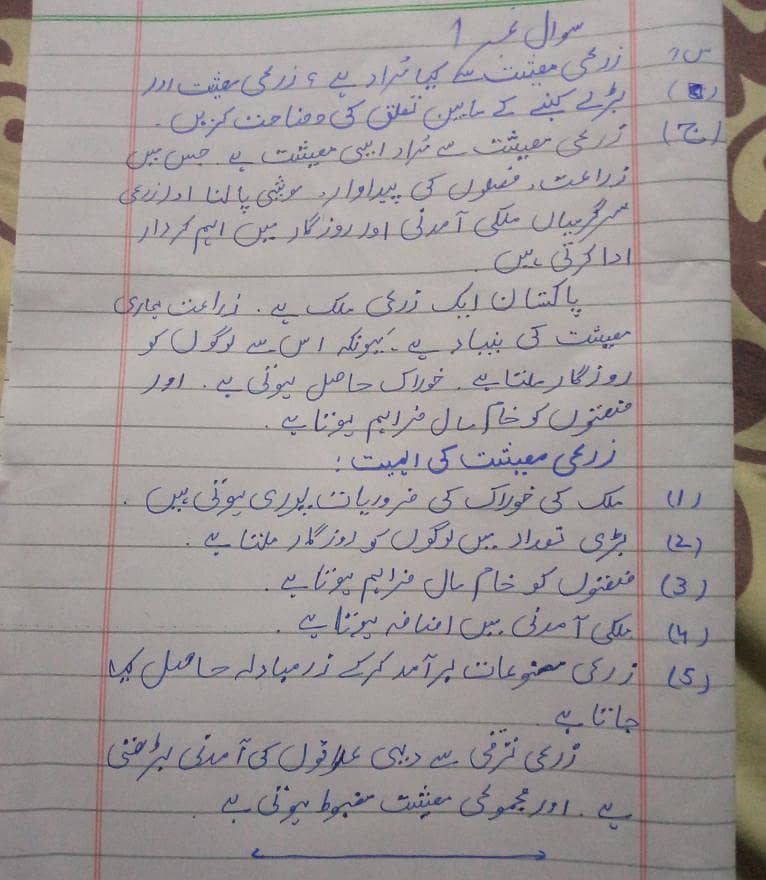 سوال نمبر 1
س؟ زرعی معیشت سے کیا مراد ہے؟ زرعی معیشت اور
بڑے کنبے کے مابین تعلق کی وضاحت کریں۔
(ج) زرعی معیشت سے مراد ایسی معیشت ہے جس میں
زراعت، فصلوں کی پیداوار، مویشی پالنا اور زرعی
سرگرمیاں ملکی آمدنی اور روزگار میں اہم کردار
ادا کرتی ہیں۔
پاکستان ایک زرعی ملک ہے۔ زراعت ہماری
معیشت کی بنیاد ہے۔ کیونکہ اس سے لوگوں کو
روزگار ملتا ہے۔ خوراک حاصل ہوتی ہے۔ اور
صنعتوں کو خام مال فراہم ہوتا ہے۔
زرعی معیشت کی اہمیت:
(1) ملک کی خوراک کی ضروریات پوری ہوتی ہیں۔
(2) بڑی تعداد میں لوگوں کو روزگار ملتا ہے۔
(3) صنعتوں کو خام مال فراہم ہوتا ہے۔
(4) ملکی آمدنی میں اضافہ ہوتا ہے۔
(5) زرعی مصنوعات برآمد کرکے زرمبادلہ حاصل کیا
جاتا ہے۔
زرعی ترقی سے دیہی علاقوں کی آمدنی بڑھتی
ہے۔ اور مجموعی معیشت مضبوط ہوتی ہے۔